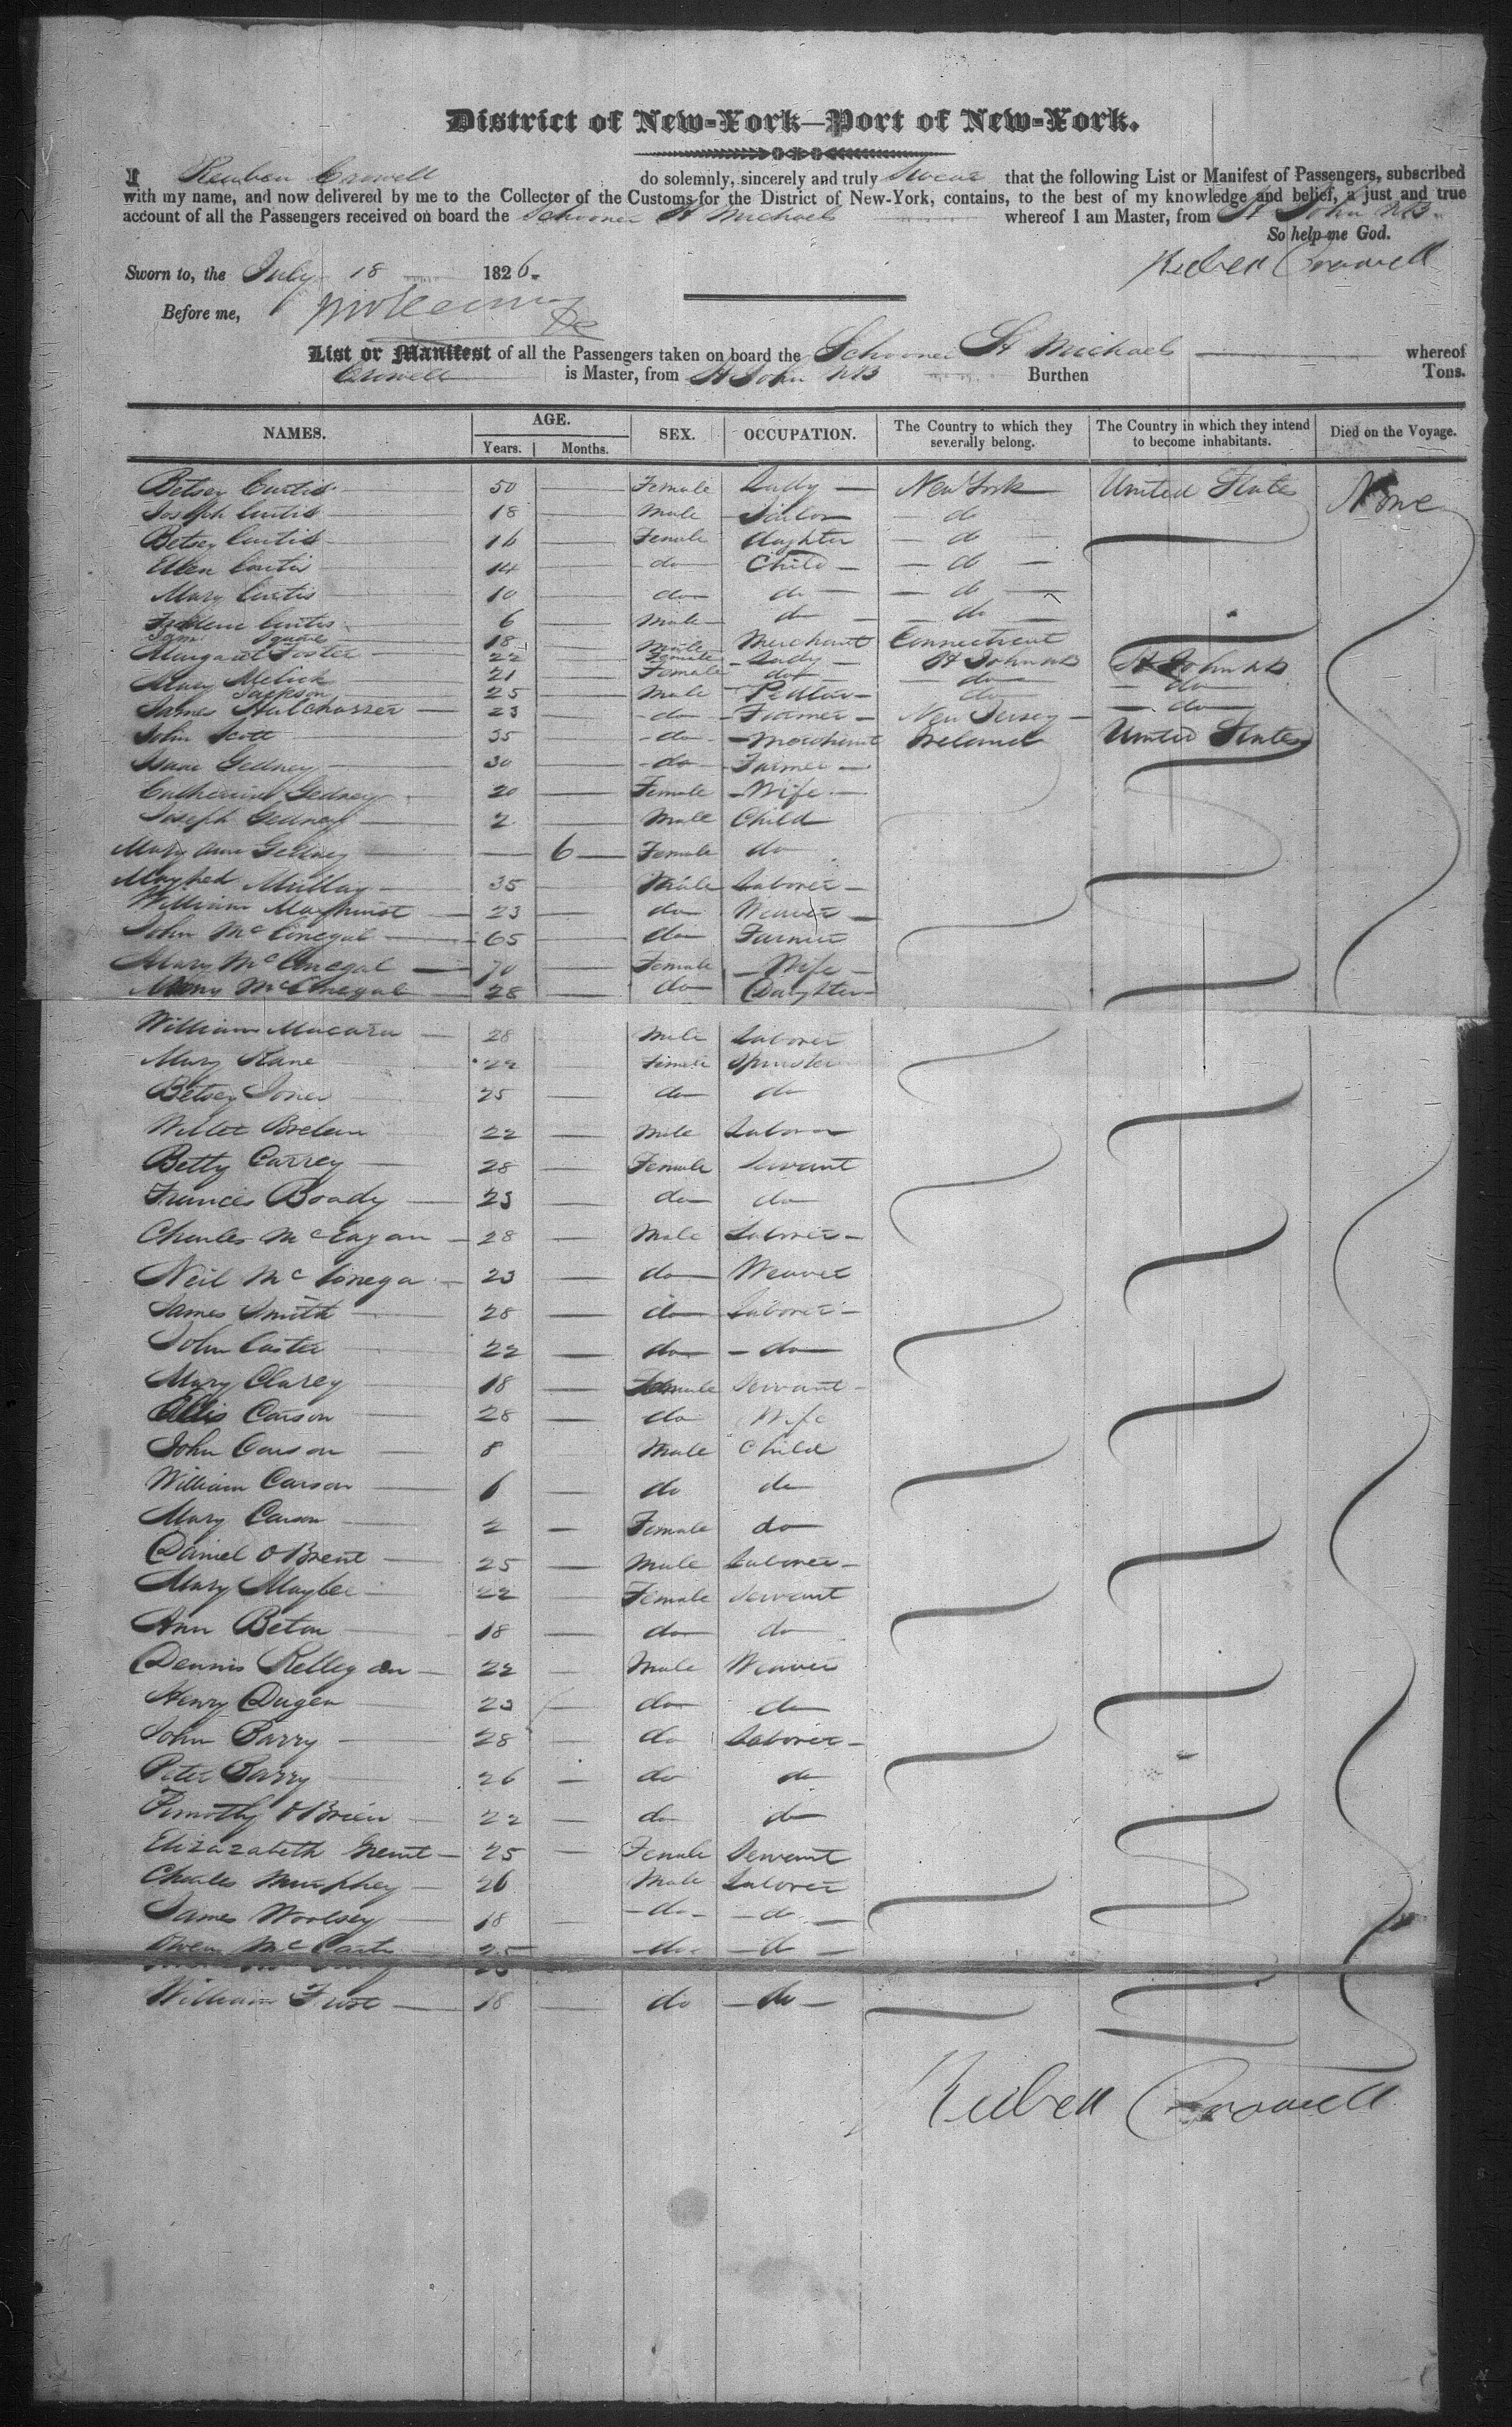 District of New-York—Port of New-York.
I Reuben Crowell do solemnly, sincerely and truly Swear that the following List or Manifest of Passengers, subscribed
with my name, and now delivered by me to the Collector of the Customs for the District of New-York, contains, to the best of my knowledge and belief, a just and true
account of all the Passengers received on board the Schooner St Michaels whereof I am Master, from St John NB.
So help me God.
Sworn to, the July 18 1826. Reuben Crowell
Before me,
List or Manifest of all the Passengers taken on board the Schooner St Michaels whereof
Crowell is Master, from St John NB Burthen Tons.
NAMES. AGE. SEX. OCCUPATION. The Country to which they severally belong. The Country in which they intend to become inhabitants. Died on the Voyage.
Years. Months.
Betsey Curtis 50 Female Lady New York United States None
Joseph Curtis 18 Male Sailor do
Betsey Curtis 16 Female daughter do
Ellen Curtis 14 do Child do
Mary Curtis 10 do do do
Curtis 6 Male do do
Squires 18 Male Merchant Connecticut
Margaret Foster 22 Female Lady St John NB St John NB
Mary Melick 21 Female do do do
Jackson 25 Male Pedlar do do
James 23 do Farmer New Jersey
John Scott 35 do Merchant Ireland United States
Isaac Gedney 30 do Farmer
Catherine Gedney 20 Female Wife
Joseph Gedney 2 Male Child
Mary Ann Gedney 6 Female do
35 Male Laborer
William 23 do Weaver
John McConegal 65 do Farmer
Mary McConegal 70 Female Wife
Mary McConegal 28 do Daughter
William Macara 28 Male Laborer
Mary Kane 22 Female Spinster
Betsey Jones 25 do do
22 Male Laborer
Betty Carrey 28 Female Servant
Frances Boady 23 do do
Charles McCagan 28 Male Laborer
Neil McConega 23 do Weaver
James Smith 28 do Laborer
John Caster 22 do do
Mary Clarey 18 Female Servant
Ellis Carson 28 do Wife
John Carson 8 Male Child
William Carson 6 do do
Mary Carson 2 Female do
Daniel OBrent 25 Male Laborer
Mary Maybee 22 Female Servant
Ann Beton 18 do do
Dennis 22 Male Weaver
Henry Dugen 23 do do
John Barry 28 do Laborer
Peter Barry 26 do do
Timothy OBrien 22 do do
Elizazabeth Grant 25 Female Servant
Charles Murphey 26 Male Laborer
James Woolsey 18 do do
Owen McCarty 25 do do
William Frost 18 do do
Reuben Crowell